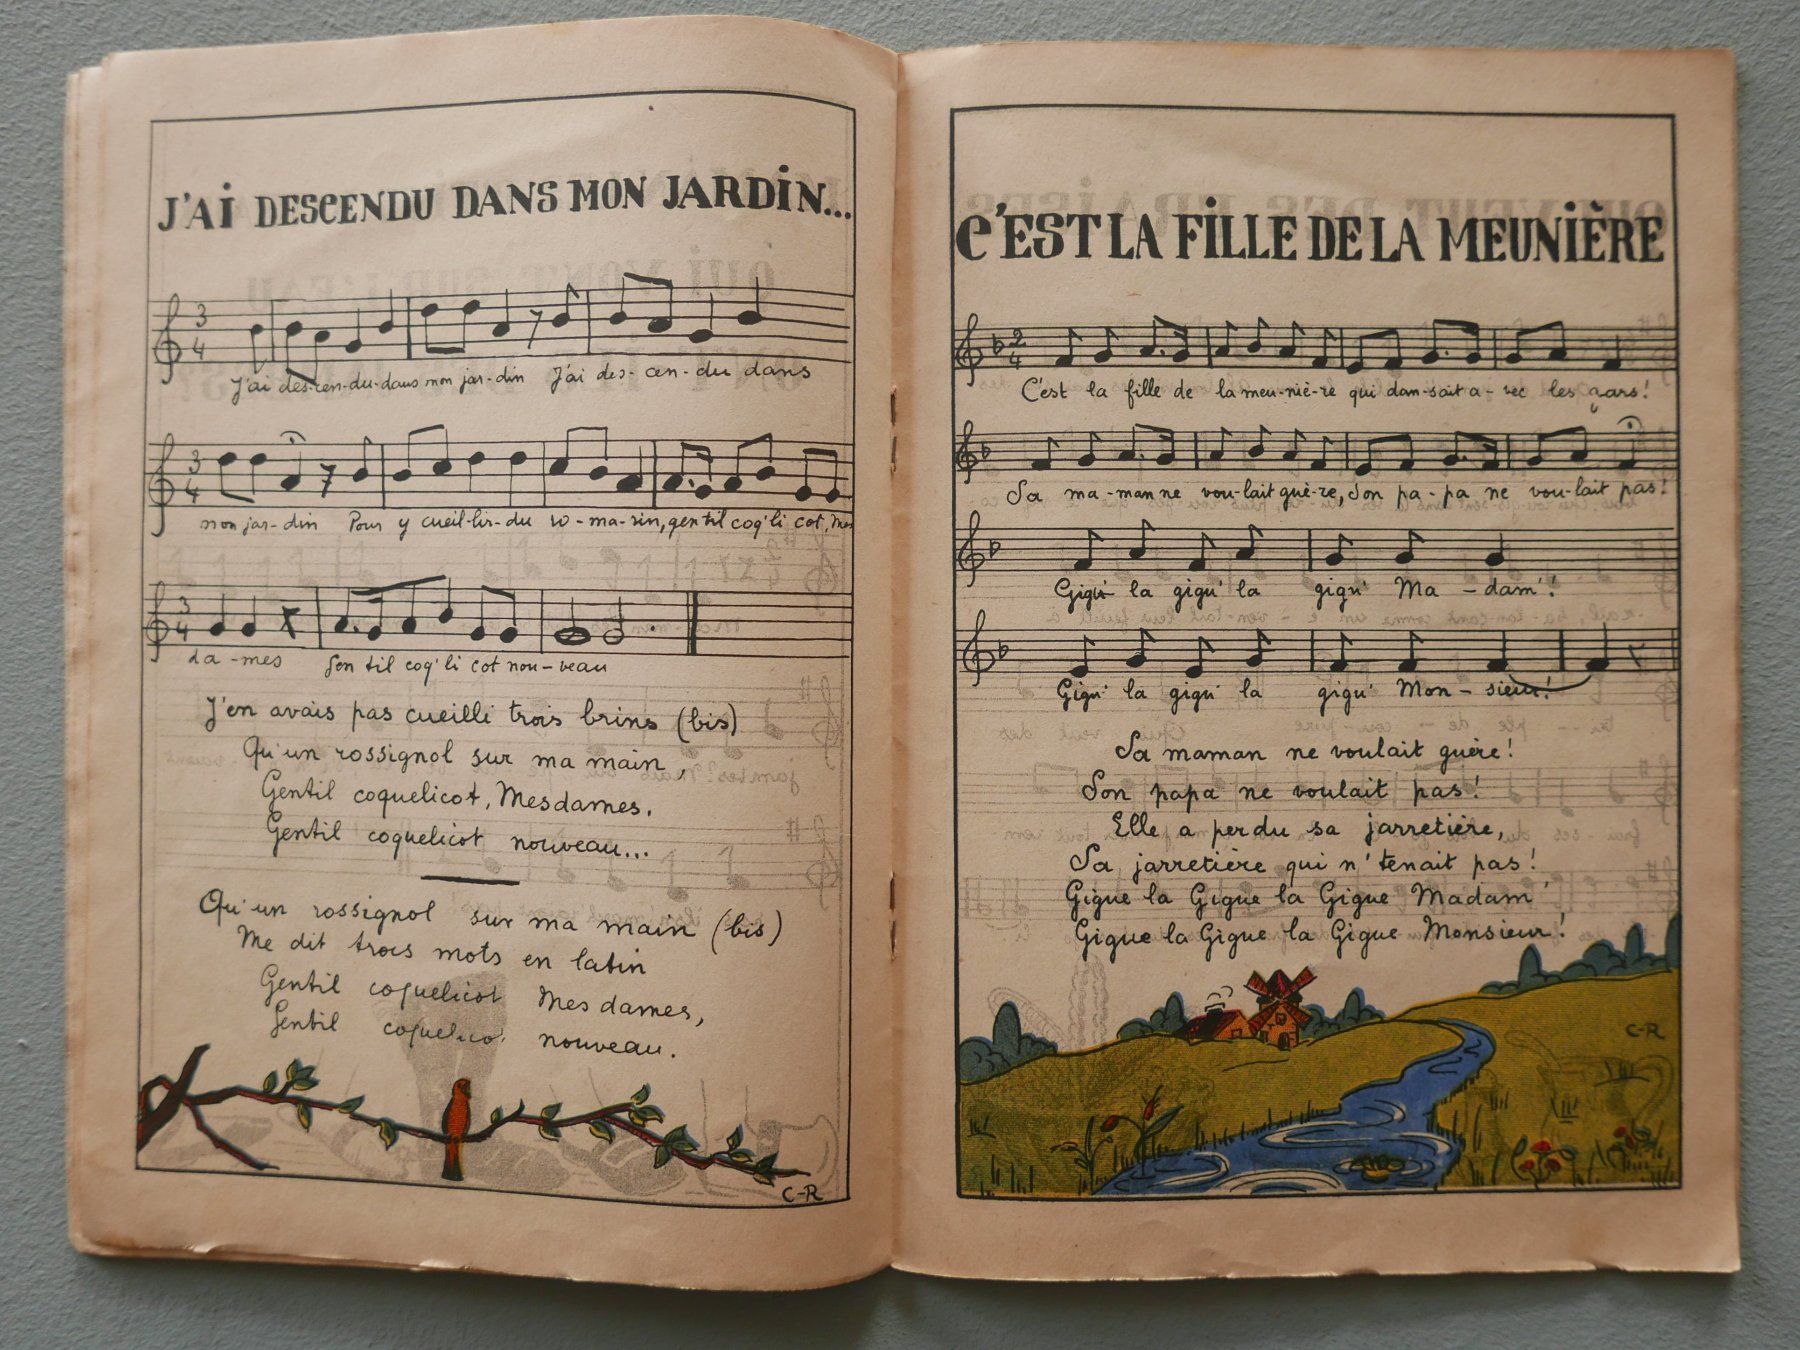 J'AI DESCENDU DANS MON JARDIN...
3 4
J'ai des-cen-du-dans mon jar-din J'ai des-cen-du dans
3 4
mon jar-din Pour y cueil-lir-du ro-ma-rin, gen til coq'li cot, Mes
3 4
da-mes Gen til coq'li cot nou-veau
J'en avais pas cueilli trois brins (bis)
Qu'un rossignol sur ma main,
Gentil coquelicot, Mesdames.
Gentil coquelicot nouveau...
Qu'un rossignol sur ma main (bis)
Me dit trois mots en latin
Gentil coquelicot Mesdames,
Gentil coquelico nouveau.
C-R
C'EST LA FILLE DE LA MEUNIÈRE
2 4
C'est la fille de la meu-niè-re qui dan-sait a-vec les gars!
Sa ma-man ne vou-lait guè-re, Son pa-pa ne vou-lait pas!
Gigu' la gigu' la gigu' Ma-dam'!
Gigu' la gigu' la gigu' Mon-sieur!
Sa maman ne voulait guère!
Son papa ne voulait pas!
Elle a perdu sa jarretière,
Sa jarretière qui n'tenait pas!
Gigue la Gigue la Gigue Madam'
Gigue la Gigue la Gigue Monsieur!
C-R